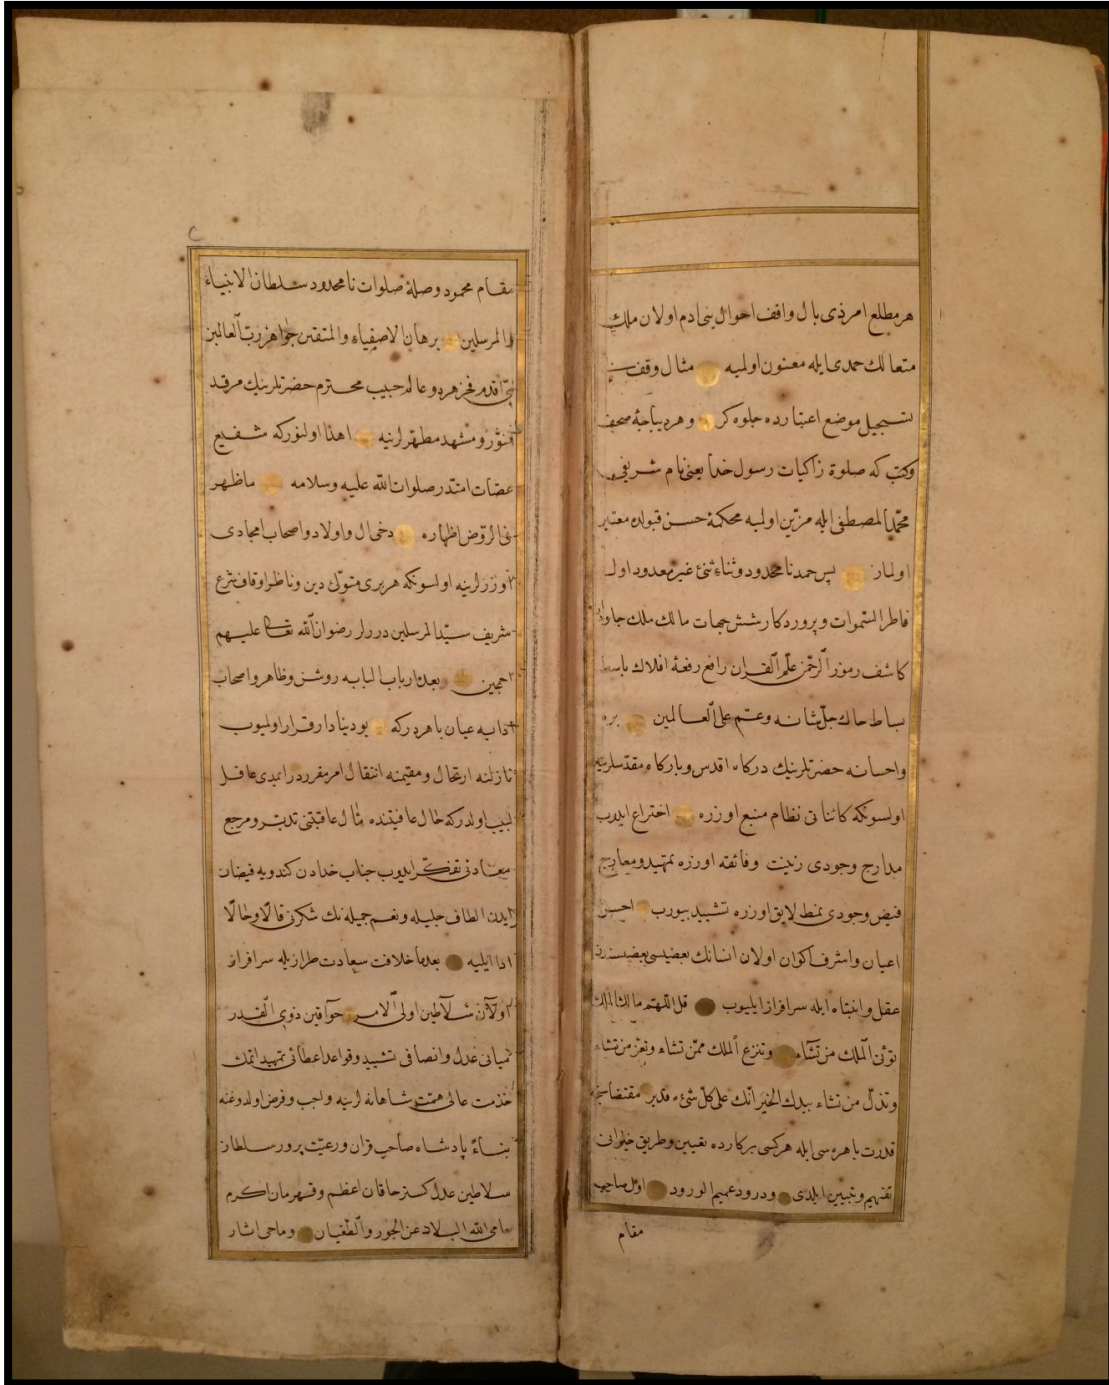 هر مطلع امر ذی بال واقف احوال بنی ادم اولان ملك
متعالك حمدی ایله معنون اولمیه مثال وقف
تسجیل موضع اعتبارده جلوه كر و هر دیباجهٔ صحف
وكتب كه صلوة زاكیات رسول خدا یعنی نام شریف
محمد المصطفی ایله مزین اولمیه محكمهٔ حسن قبولده معتبر
اولماز پس حمد نامحدود وثناء غیر معدود اول
فاطر السموات وپروردكار شش جهات مالك ملك
كاشف رموز الرحمن علم القران رافع رفعهٔ افلاك باسط
بساط خاك جل شانه وعم علی العالمین بره
واحسانه حضرتلرینك دركاه اقدس وباركاه مقدسلرینه
اولسونكه كائناتی نظام منیع اوزره اختراع ایدوب
مدارج وجودی زینت وفائقه اوزره تمهید ومعارج
فیض وجودی نمط لایق اوزره تشیید بیورب احسن
اعیان واشرف اكوان اولان انسانك بعضیسی بعضیسندن
عقل وانتباه ایله سرافراز ایلیوب قل اللهم مالك الملك
توتی الملك من تشاء وتنزع الملك ممن تشاء وتعز من تشاء
وتذل من تشاء بیدك الخیر انك علی كل شیء قدیر مقتضاسنجه
قدرت باهره سی ایله هركسی بركارده تعیین وطریق
تفهیم وتبیین ایلدی ودرود عمیم الورود اول صاحب
مقام
مقام محمود وصلهٔ صلوات نامحدود سلطان الانبیاء
والمرسلین برهان الاصفیاء والمتقین جواهر رب العالمین
نبی اقدم فخر هر دو عالم حبیب محترم حضرتلرینك مرقد
منور ومشهد مطهرلرینه اهدا اولنور كه شفیع
عصات امتدر صلوات الله علیه وسلامه ماظهر
فی الروض ازهاره دخی ال واولاد واصحاب امجادی
اوزرلرینه اولسونكه هر بری متولی دین وناظر اوقاف شرع
شریف سید المرسلین درلر رضوان الله تعالی علیهم
اجمعین بعده ارباب البابه روشن وظاهر واصحاب
ادابه عیان باهردركه بو دنیا دار قرار اولمیوب
نازلنه ارتحال ومقیمنه انتقال امر مقرردر ایمدی عاقل
لبیب اولدركه حال عافیتنده مآل عاقبتنی تدبر ومرجع
معادنی تفكر ایدوب جناب خدادن كندویه فیضان
ایدن الطاف جلیله ونعم جمیله نك شكرنی قالا وحالا
ادا ایلیه بعدما خلافت سعادت طرازیله سرافراز
اولان سلاطین اولی الامر خواقین ذوی القدر
مبانی عدل وانصافی تشیید وقواعد اعطائی تمهید اتمك
خدمت عالی همت شاهانه لرینه واجب وفرض اولدوغنه
بناء پادشاه صاحب قران ورعیت پرور سلطان
سلاطین عدل كستر خاقان اعظم وقهرمان اكرم
حامی الله البلاد عن الجور والطغیان وماحی اثار